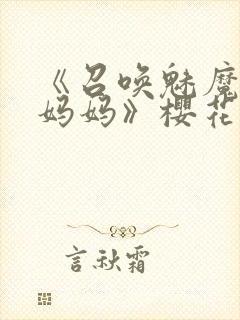 《召唤魅魔
妈妈》樱花
言秋霜